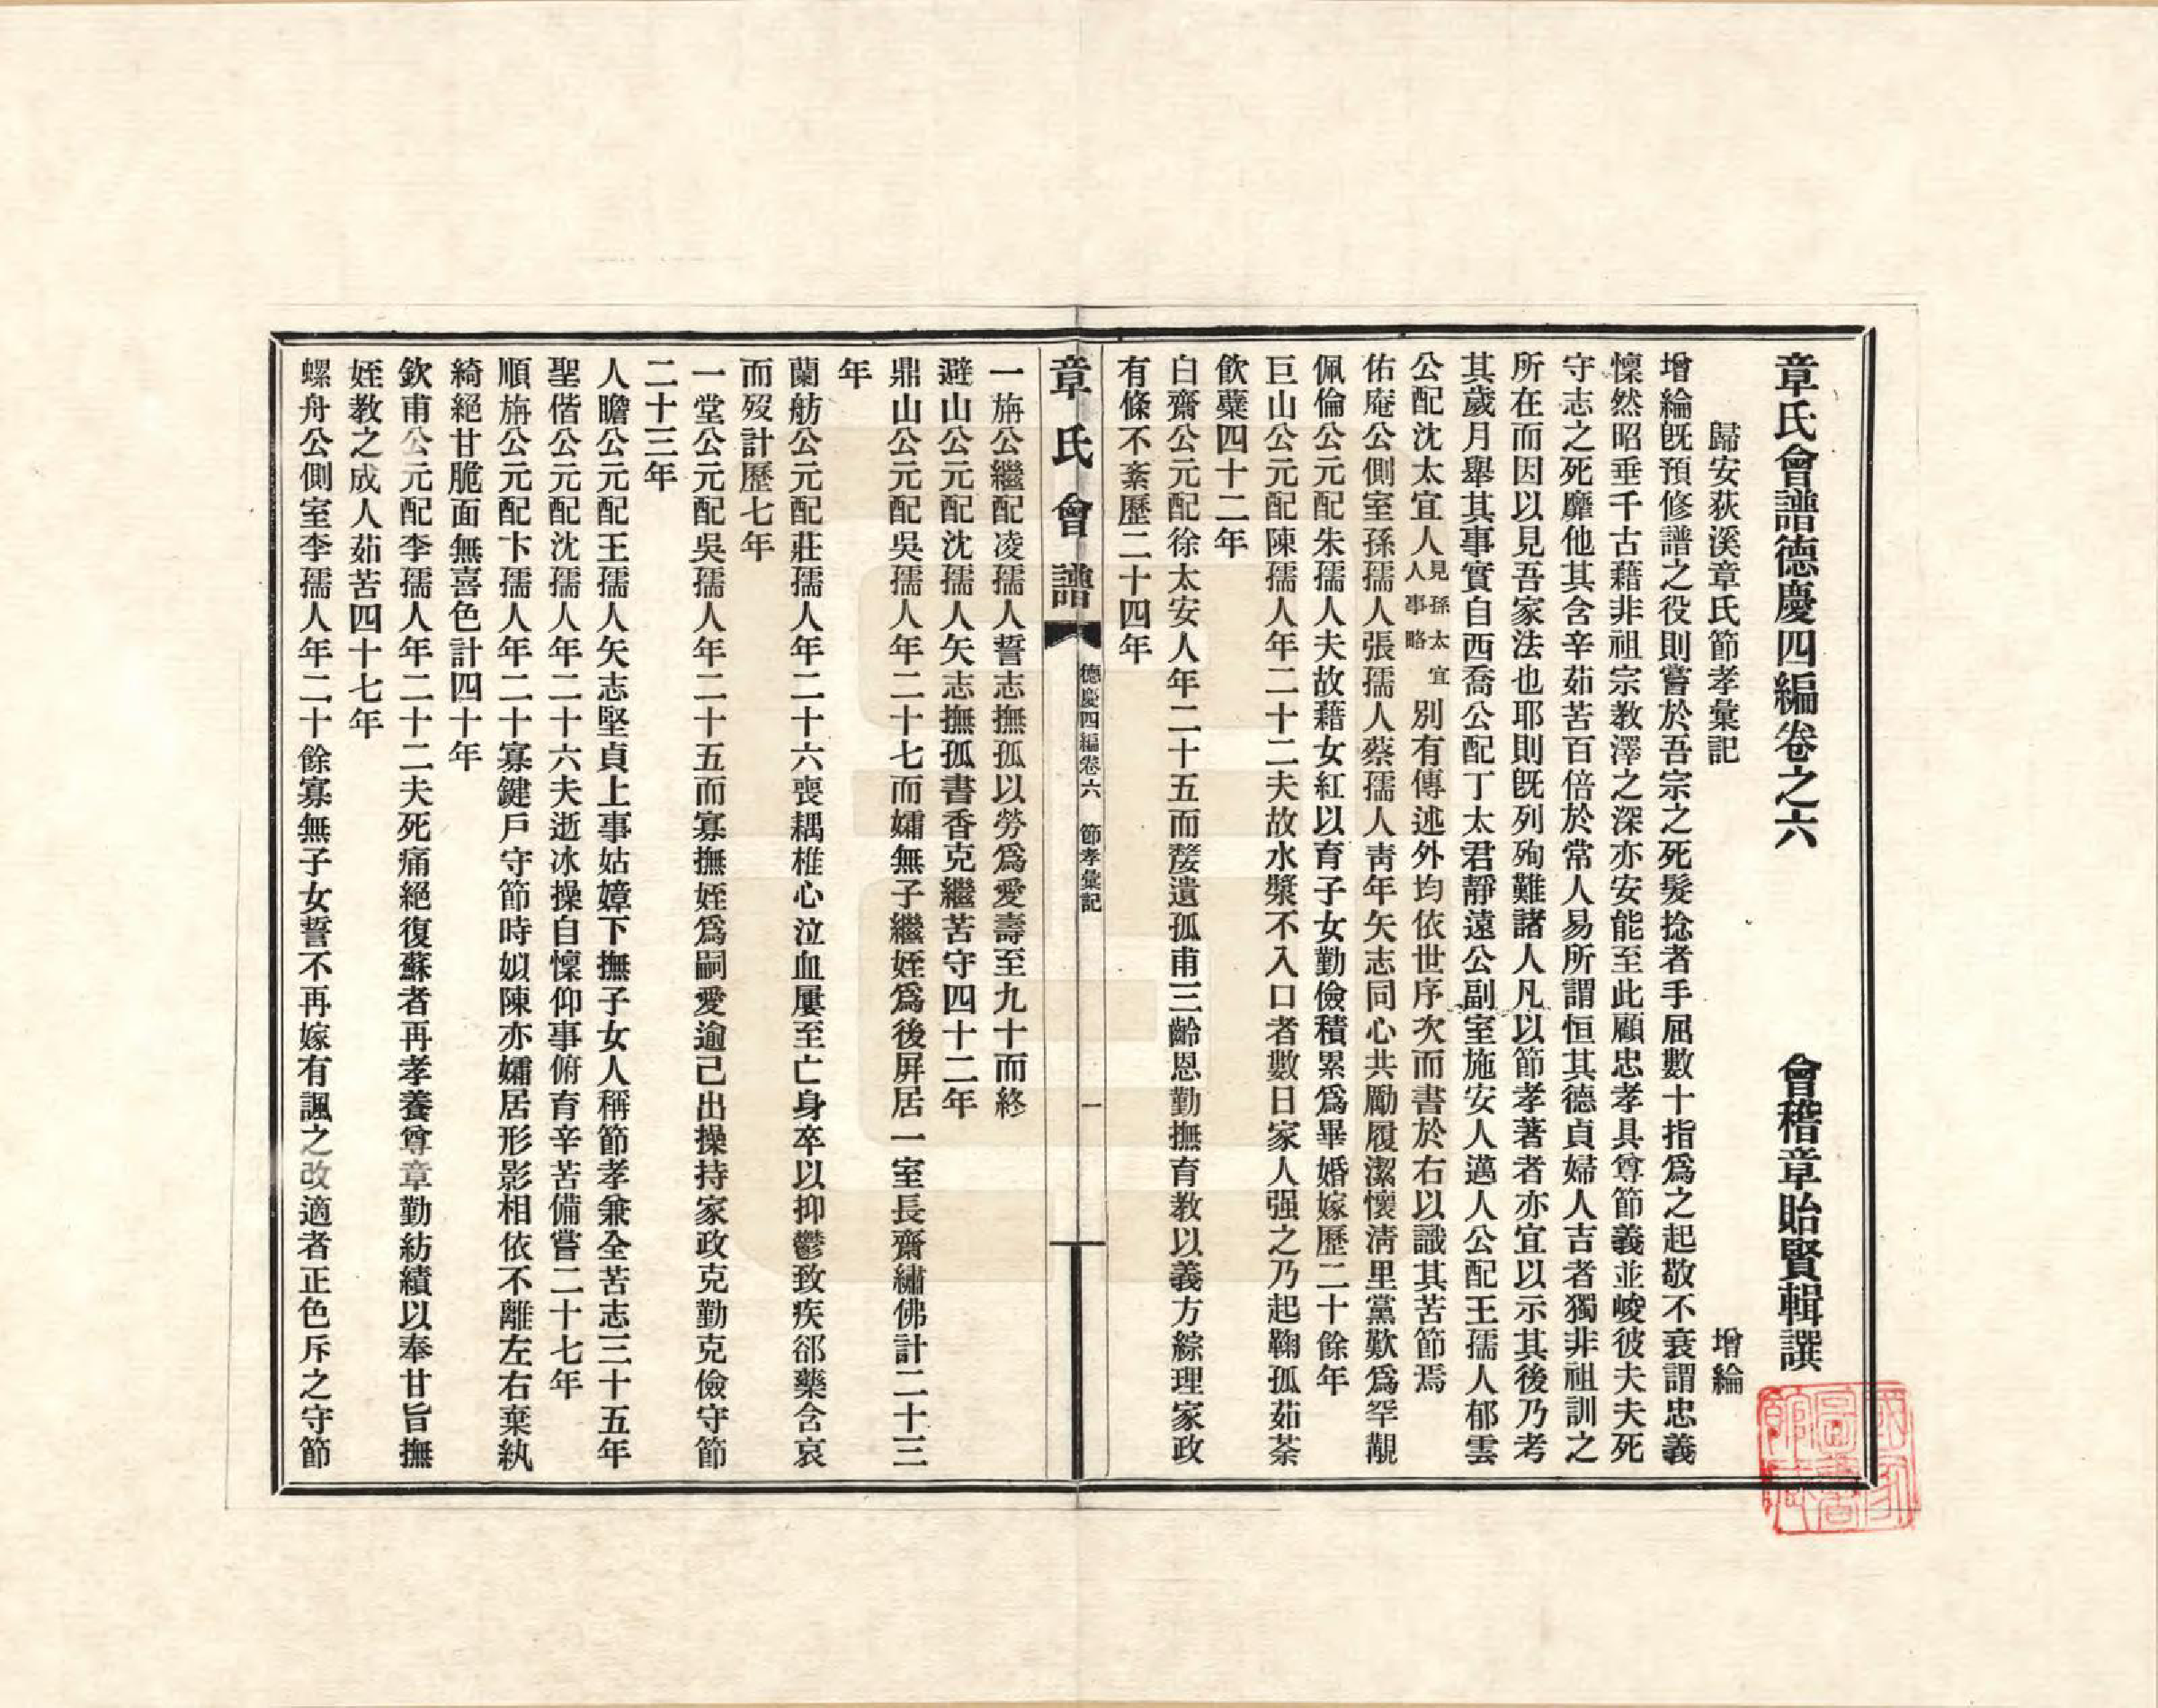 章氏會譜德慶四編卷之六 會稽章貽賢輯譔
歸安荻溪章氏節孝彙記 增綸
增綸旣預修譜之役則嘗於吾宗之死髮捻者手屈數十指爲之起敬不衰謂忠義
懍然昭垂千古藉非祖宗教澤之深亦安能至此顧忠孝具尊節義並峻彼夫夫死
守志之死靡他其含辛茹苦百倍於常人易所謂恒其德貞婦人吉者獨非祖訓之
所在而因以見吾家法也耶則旣列殉難諸人凡以節孝著者亦宜以示其後乃考
其歲月舉其事實自西喬公配丁太君靜遠公副室施安人邁人公配王孺人郁雲
公配沈太宜人見孫太宜人事略別有傳述外均依世序次而書於右以識其苦節焉
佑庵公側室孫孺人張孺人蔡孺人靑年矢志同心共勵履潔懷淸里黨歎爲罕覯
佩倫公元配朱孺人夫故藉女紅以育子女勤儉積累爲畢婚嫁歷二十餘年
巨山公元配陳孺人年二十二夫故水漿不入口者數日家人强之乃起鞠孤茹荼
飲蘗四十二年
白齋公元配徐太安人年二十五而嫠遺孤甫三齡恩勤撫育教以義方綜理家政
有條不紊歷二十四年
章氏會譜 德慶四編卷六 節孝彙記 一
一旃公繼配凌孺人誓志撫孤以勞爲愛壽至九十而終
避山公元配沈孺人矢志撫孤書香克繼苦守四十二年
鼎山公元配吳孺人年二十七而孀無子繼姪爲後屛居一室長齋繡佛計二十三
年
蘭舫公元配莊孺人年二十六喪耦椎心泣血屢至亡身卒以抑鬱致疾郤藥含哀
而歿計歷七年
一堂公元配吳孺人年二十五而寡撫姪爲嗣愛逾己出操持家政克勤克儉守節
二十三年
人瞻公元配王孺人矢志堅貞上事姑嫜下撫子女人稱節孝兼全苦志三十五年
聖偕公元配沈孺人年二十六夫逝冰操自懍仰事俯育辛苦備嘗二十七年
順旃公元配卞孺人年二十寡鍵戶守節時姒陳亦孀居形影相依不離左右棄紈
綺絕甘脆面無喜色計四十年
欽甫公元配李孺人年二十二夫死痛絕復蘇者再孝養尊章勤紡績以奉甘旨撫
姪教之成人茹苦四十七年
螺舟公側室李孺人年二十餘寡無子女誓不再嫁有諷之改適者正色斥之守節